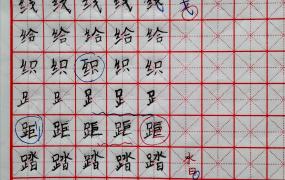 线 线 线 线 线
给 给 给 给 给
织 织 织 织 织
𧾷 𧾷 𧾷 𧾷 𧾷
距 距 距 距 距
踏 踏 踏 踏 踏 水日